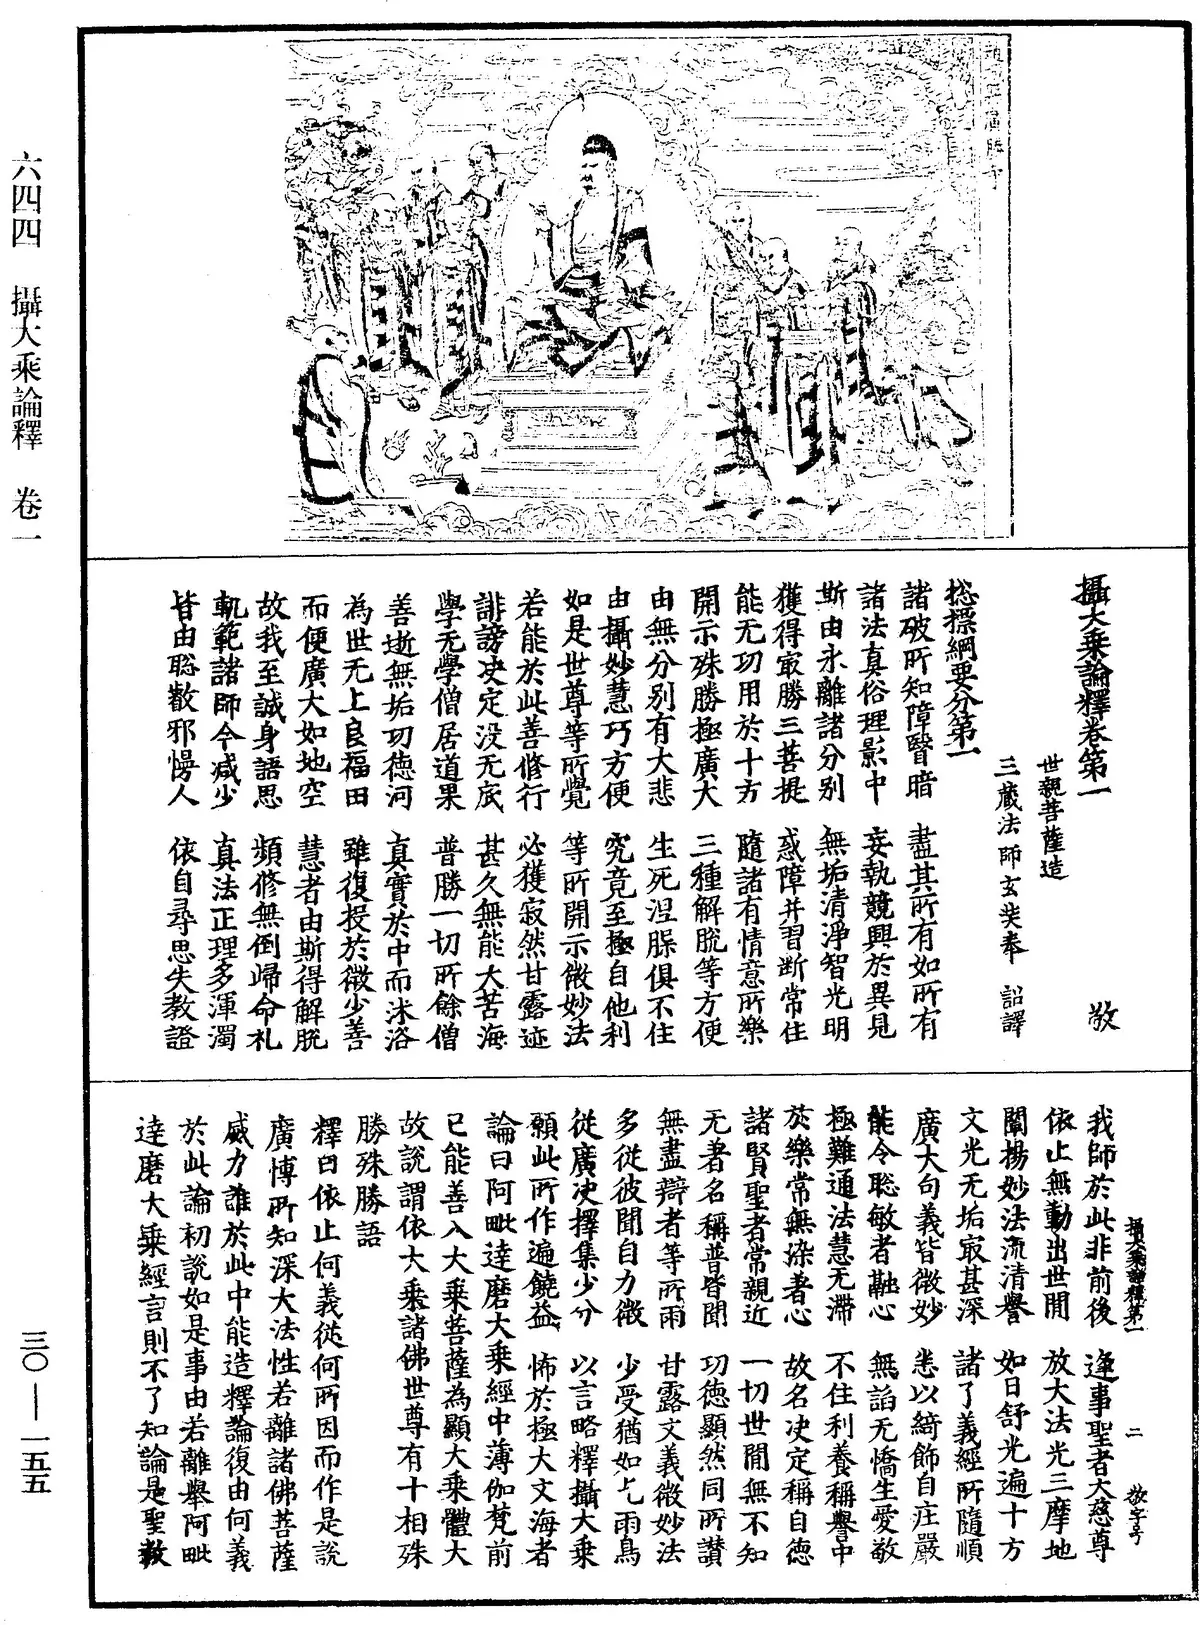 六四四　攝大乘論釋　卷一
三〇—一五五
趙城縣廣勝寺
攝大乘論釋卷第一　敬
世親菩薩造
三藏法師玄奘奉　詔譯
捴摽綱要分第一
諸破所知障瞖暗　盡其所有如所有
諸法真俗理影中　妄執競興於異見
斯由永離諸分別　無垢清淨智光明
獲得冣勝三菩提　惑障并習斷常住
能无功用於十方　隨諸有情意所樂
開示殊勝極廣大　三種解脫等方便
由無分別有大悲　生死涅槃俱不住
由攝妙慧巧方便　究竟至極自他利
如是世尊等所覺　等所開示微妙法
若能於此善修行　必獲寂然甘露迹
誹謗決定没无底　甚久無能大苦海
學无學僧居道果　普勝一切所餘僧
善逝無垢功德河　真實於中而沐浴
為世无上良福田　雖復投於微少善
而便廣大如地空　慧者由斯得解脫
故我至誠身語思　頻修無倒歸命礼
軌範諸師今減少　真法正理多渾濁
皆由聡敏邪慢人　依自尋思失教證
我師於此非前後　逢事聖者大慈尊
攝大乘論釋第一　二　敬字号
依止無動出世間　放大法光三摩地
闡揚妙法流清譽　如日舒光遍十方
文光无垢冣甚深　諸了義經所隨順
廣大句義皆微妙　悉以綺飾自庄嚴
能令聡敏者融心　無諂无憍生愛敬
極難通法慧无滯　不住利養稱譽中
於樂常無染著心　故名決定稱自德
諸賢聖者常親近　一切世間無不知
无著名稱普皆聞　功德顯然同所讃
無盡辯者等所雨　甘露文義微妙法
多從彼聞自力微　少受猶如乞雨鳥
從廣決擇集少分　以言略釋攝大乘
願此所作遍饒益　怖於極大文海者
論曰阿毗達磨大乘經中薄伽梵前
已能善入大乘菩薩為顯大乘體大
故說謂依大乘諸佛世尊有十相殊
勝殊勝語
釋曰依止何義從何所因而作是說
廣博所知深大法性若離諸佛菩薩
威力誰於此中能造釋論復由何義
於此論初說如是事由若離舉阿毗
達磨大乘經言則不了知論是聖教